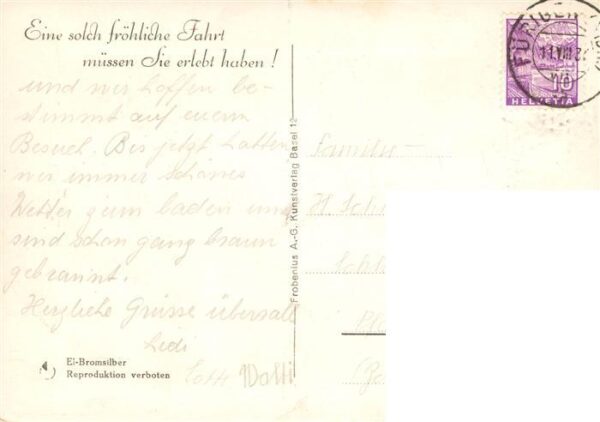 Eine solch fröhliche Fahrt
müssen Sie erlebt haben !
und wir hoffen be-
stimmt auf euern
Besuch. Bis jetzt hatten
wir immer schönes
Wetter zum baden und
sind schon ganz braun
gebrannt.
Herzliche Grüsse übersall
Ledi
El-Bromsilber
Reproduktion verboten
Frobenius A.-G. Kunstverlag Basel 12
FÜRIGEN
10
HELVETIA
Familie
H. Sch